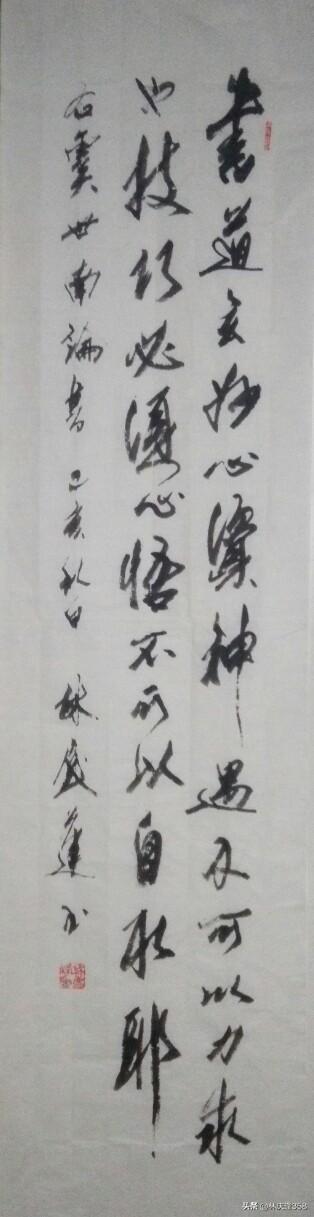 書道玄妙心資神遇不可以力求
也技巧必須心悟不可以自取耶
右虞世南論書 己亥秋日 林書
头条 @林庆358